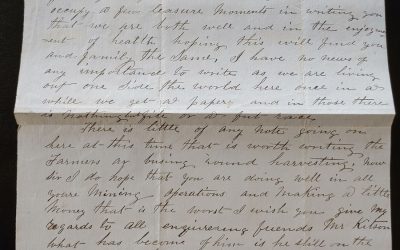 occupy a few leasure moments in writing you
that we are both well and in the enjoym
ent of health hoping this will find you
and family the Same, I have no news of
any importance to write as we are living
out one Side the world here once in a
while we get a paper and in those there
is nothing but a foot race
There is little of any note going on
here at this time that is worth writing the
Farmers ar busing round harvesting, now
Sir I do hope that you are doing well in all
youre Mining operations and making a little
Money that is the worst I wish you give my
regards to all enquireing friends Mr Kitson
what has become of him is he still on the